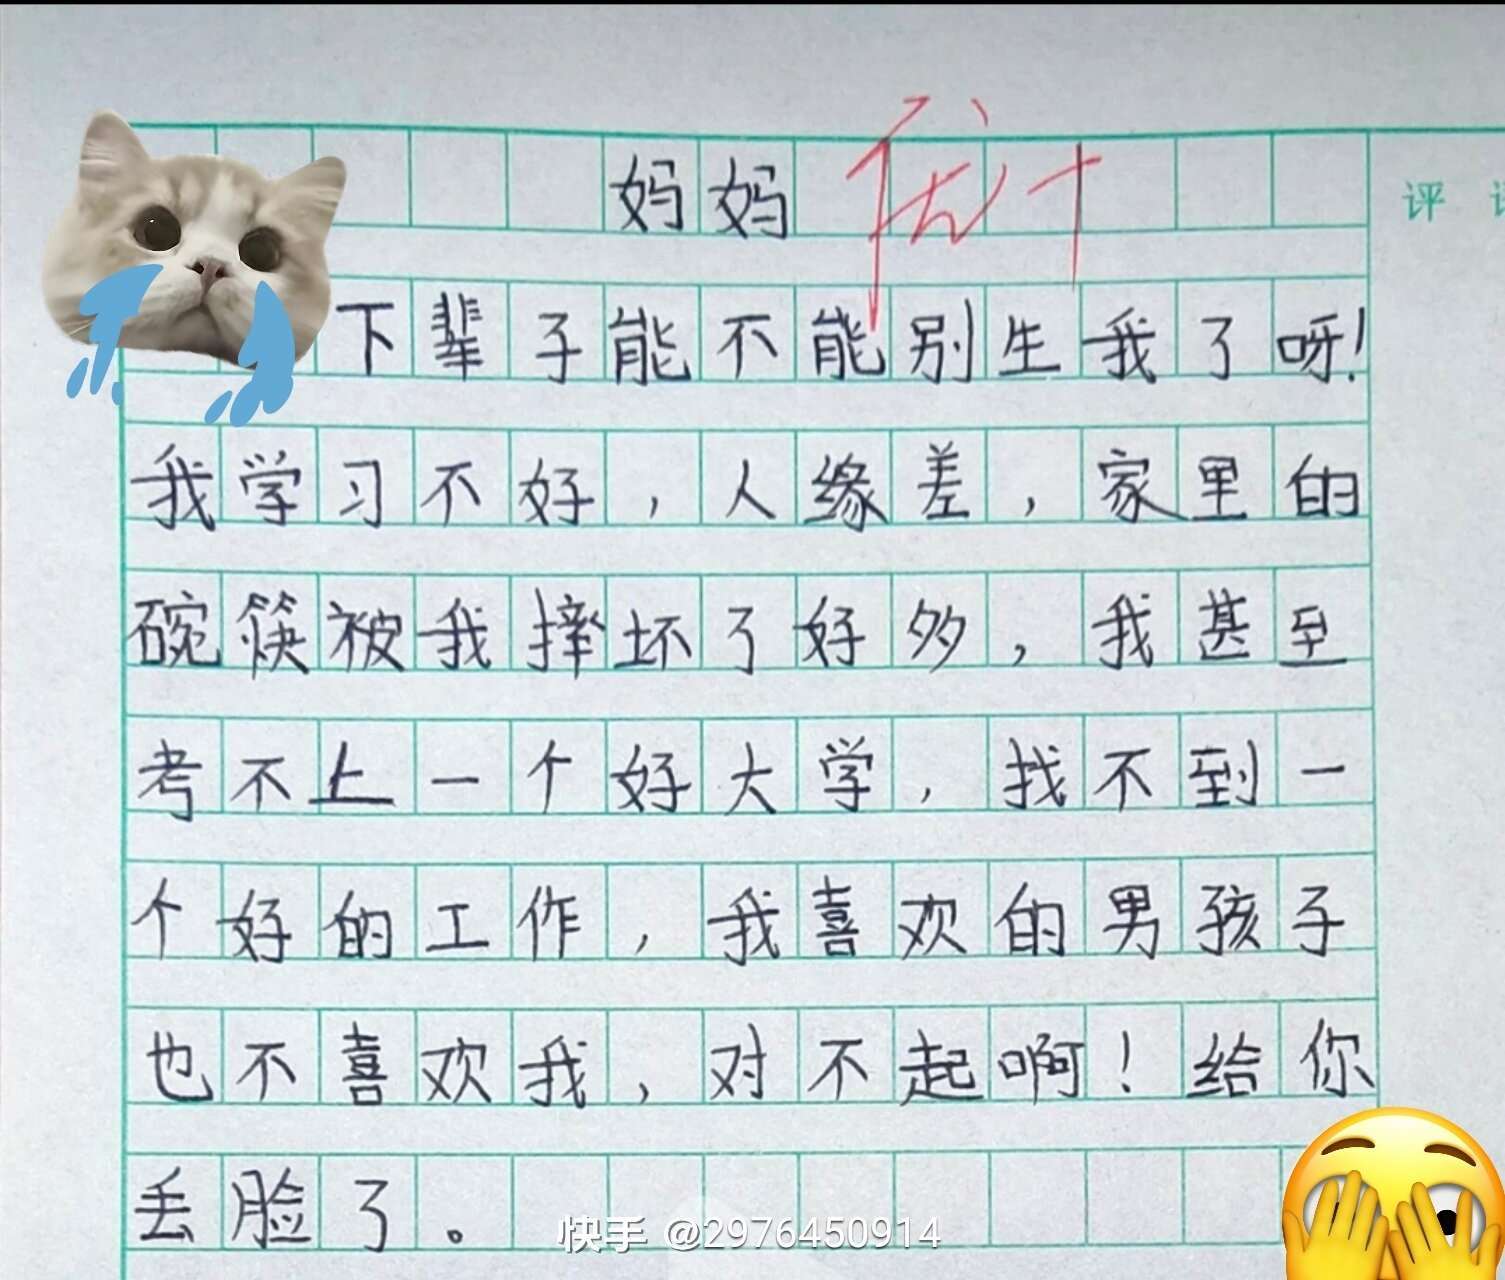 妈妈 优+
评
下辈子能不能别生我了呀!
我学习不好,人缘差,家里的
碗筷被我摔坏了好多,我甚至
考不上一个好大学,找不到一
个好的工作,我喜欢的男孩子
也不喜欢我,对不起啊!给你
丢脸了。
快手 @2976450914